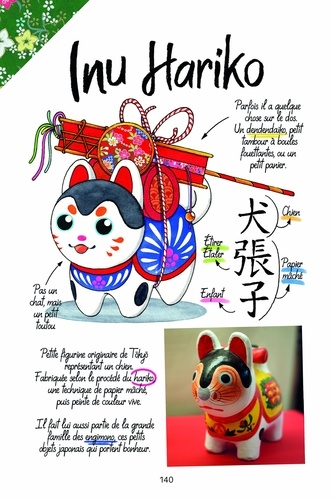 Inu Hariko
Parfois il a quelque
chose sur le dos.
Un dendendaiko, petit
tambour à boules
fouettantes, ou un
petit panier.
犬張子
Chien
Étirer
Étaler
Papier
mâché
Enfant
Pas un
chat, mais
un petit
toutou
Petite figurine originaire de Tôkyô
représentant un chien.
Fabriquée selon le procédé du hariko
une technique de papier mâché,
puis peinte de couleur vive.
Il fait lui aussi partie de la grande
famille des engimono, ces petits
objets japonais qui portent bonheur.
140